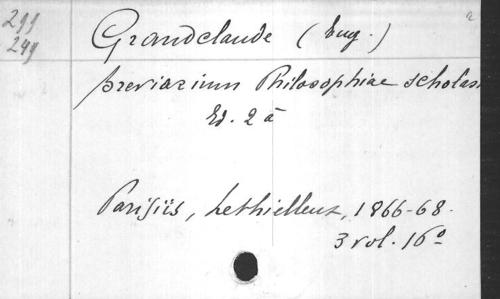 299
249
Grandclaude (Eug.)
breviarium Philosophiae scholas
Ed. 2 a
Parisiis, Lethielleux, 1866-68.
3 vol. 16º